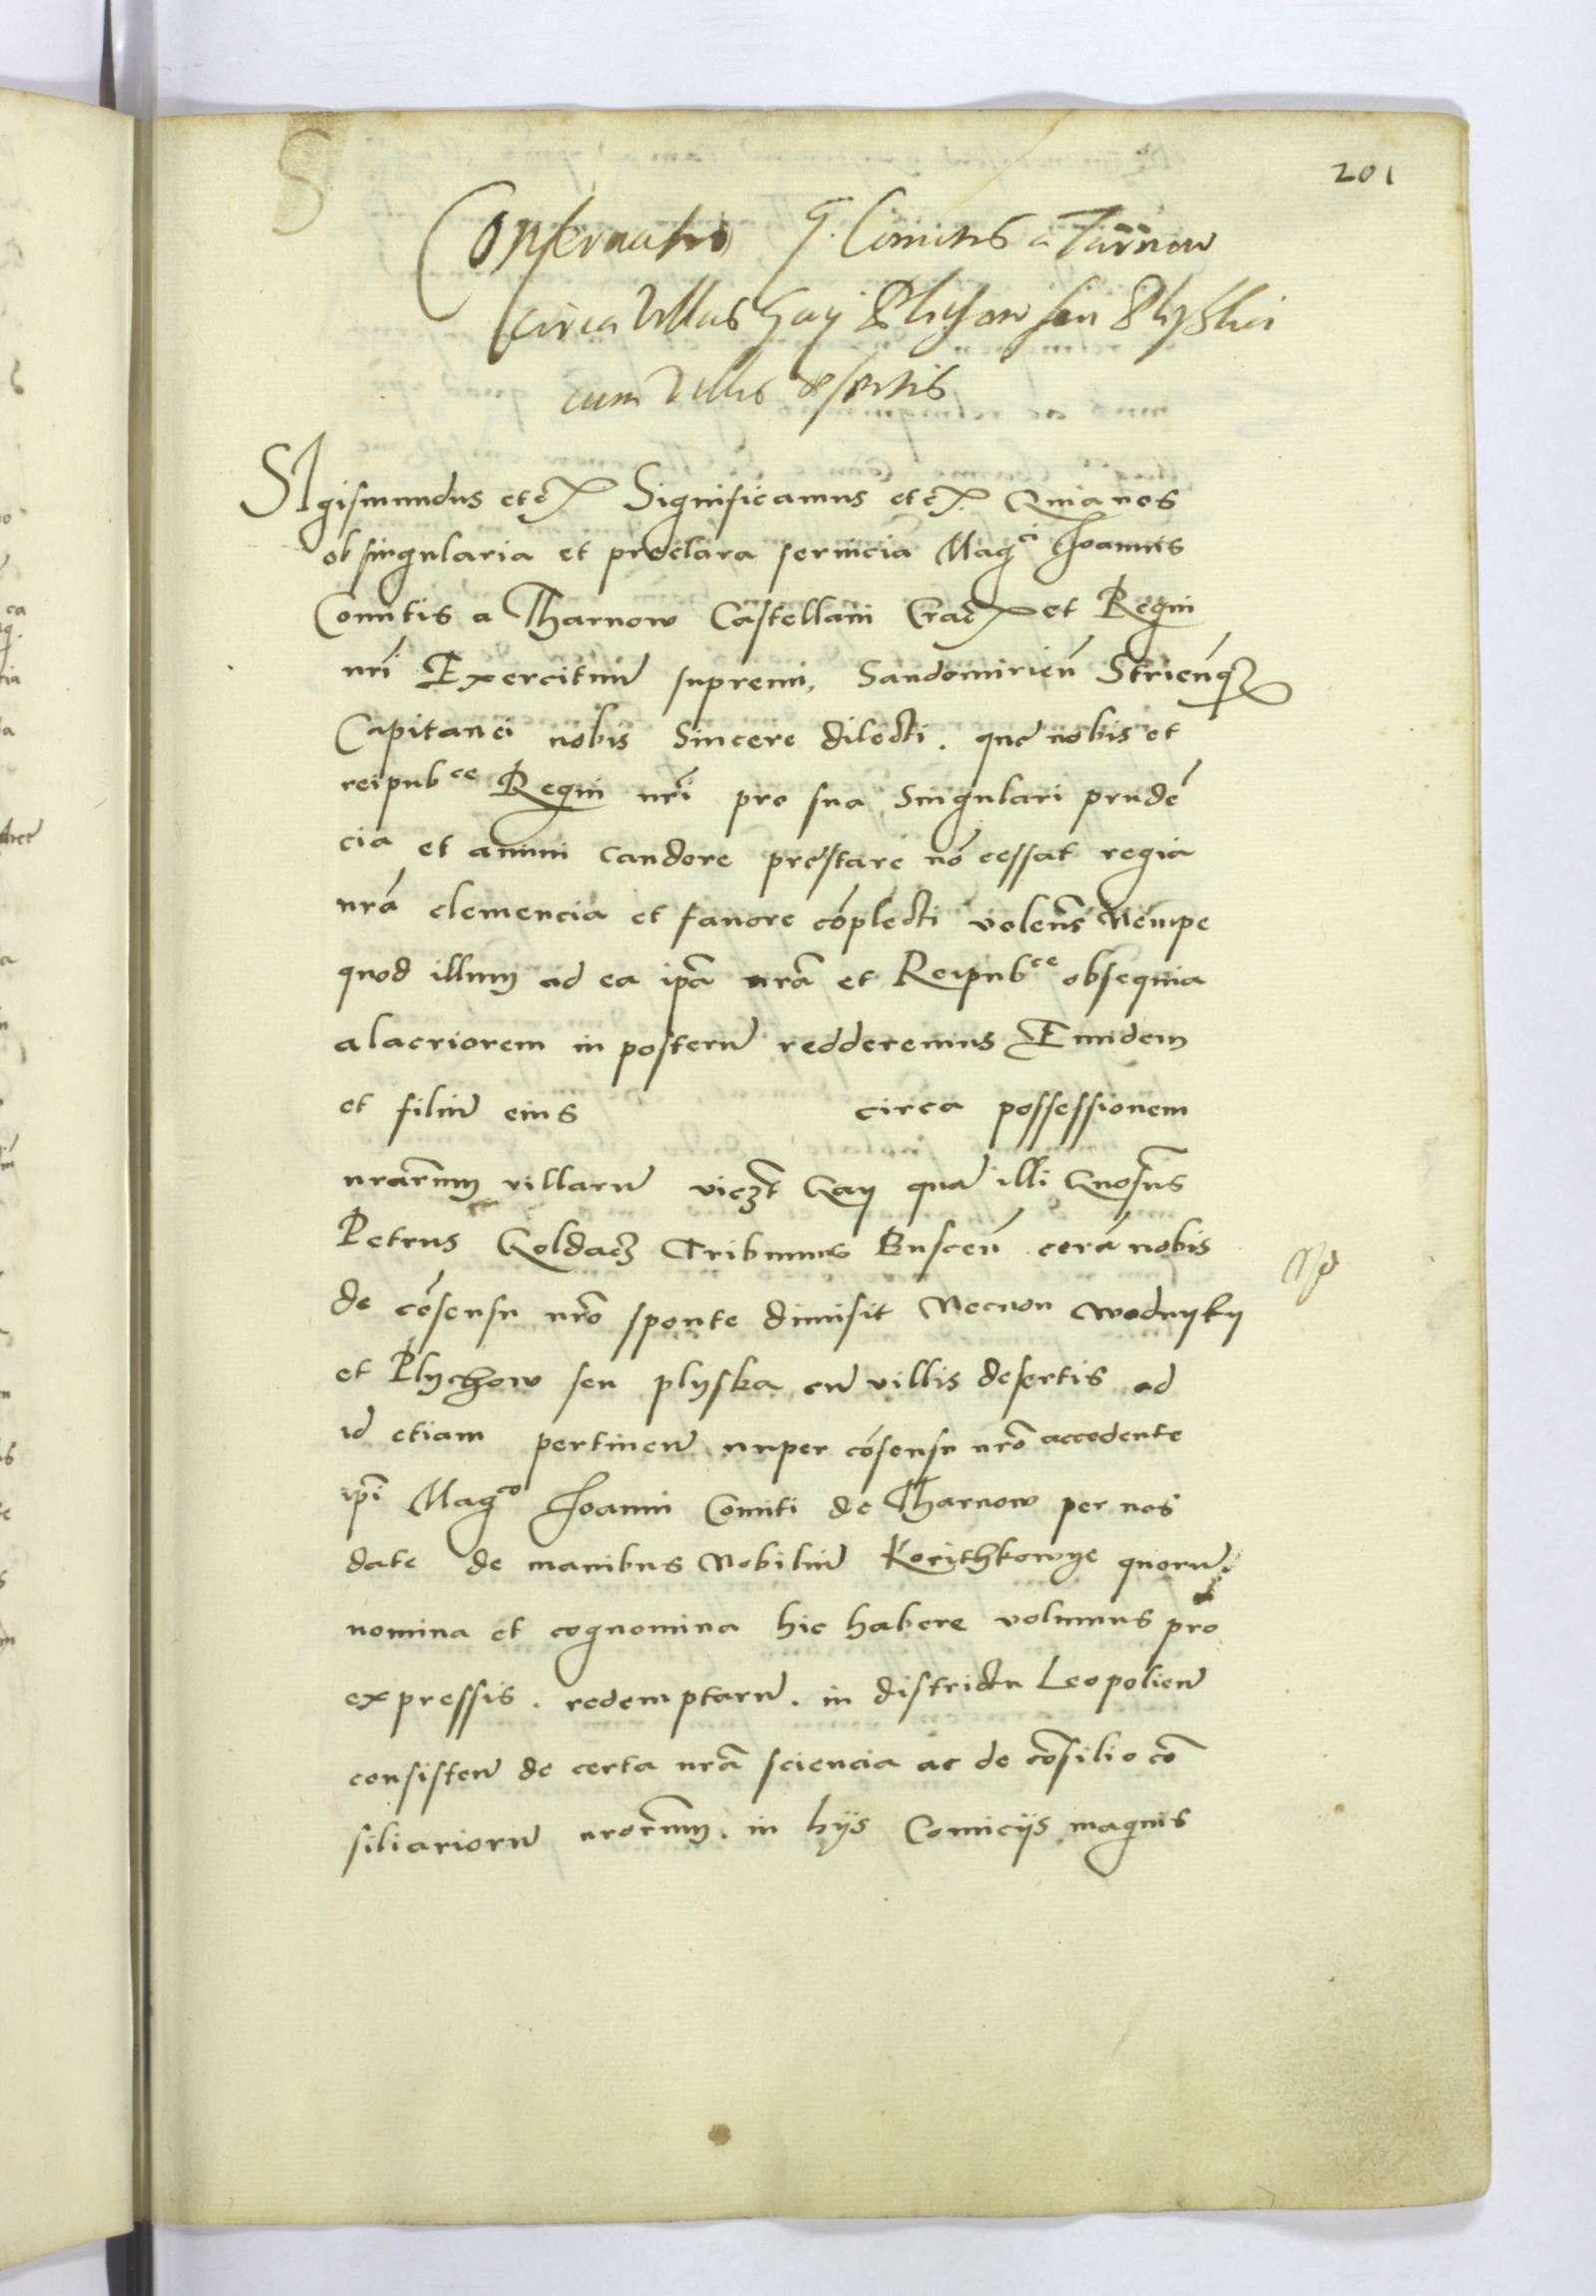 201
Conservatio G. Comitis a Tarnow
circa Villas Gay Plichow seu Plyska
cum Villis desertis
SIgismundus etc̄ Significamus etc̄. Quia nos
ob singularia et preclara seruicia Mag^ci Joannis
Comitis a Tharnow Castellani Crac̄ et Regni
nr̄i Exercituū supremi, Sandomirien̄ Strien̄q3
Capitanei nobis Sincere dilecti. que nobis et
reipub^ce Regni nr̄i pro sua Singulari prudē
cia et animi candore prestare nō cessat regia
nrā clemencia et fauore cōplecti volen̄s Nempe
quod illum ad ea ip̄a nrā et Reipub^ce obsequia
alacriorem in posterū redderemus Eundem
et filiū eius circa possessionem
nrārum villarū vicz̄t Gay quā illi Gn̄osus
Petrus Goldacz Tribunus Buscen̄ corā nobis
de cōsensu nrō sponte dimisit Necnon Wodnyky
et Plychow seu plyska cū villis desertis ad
id etiam pertinen̄ nuper cōsensu nrō accedente
ip̄i Mag^co Joanni Comiti de Tharnow per nos
date de manibus Nobiliū Korithkowye quorū
nomina et cognomina hic habere volumus pro
expressis. redemptarū. in districtu Leopolien̄
consisten̄ de certa nrā sciencia ac de cōsilio cō
siliariorū nrōrum. in hijs Comicijs magnis